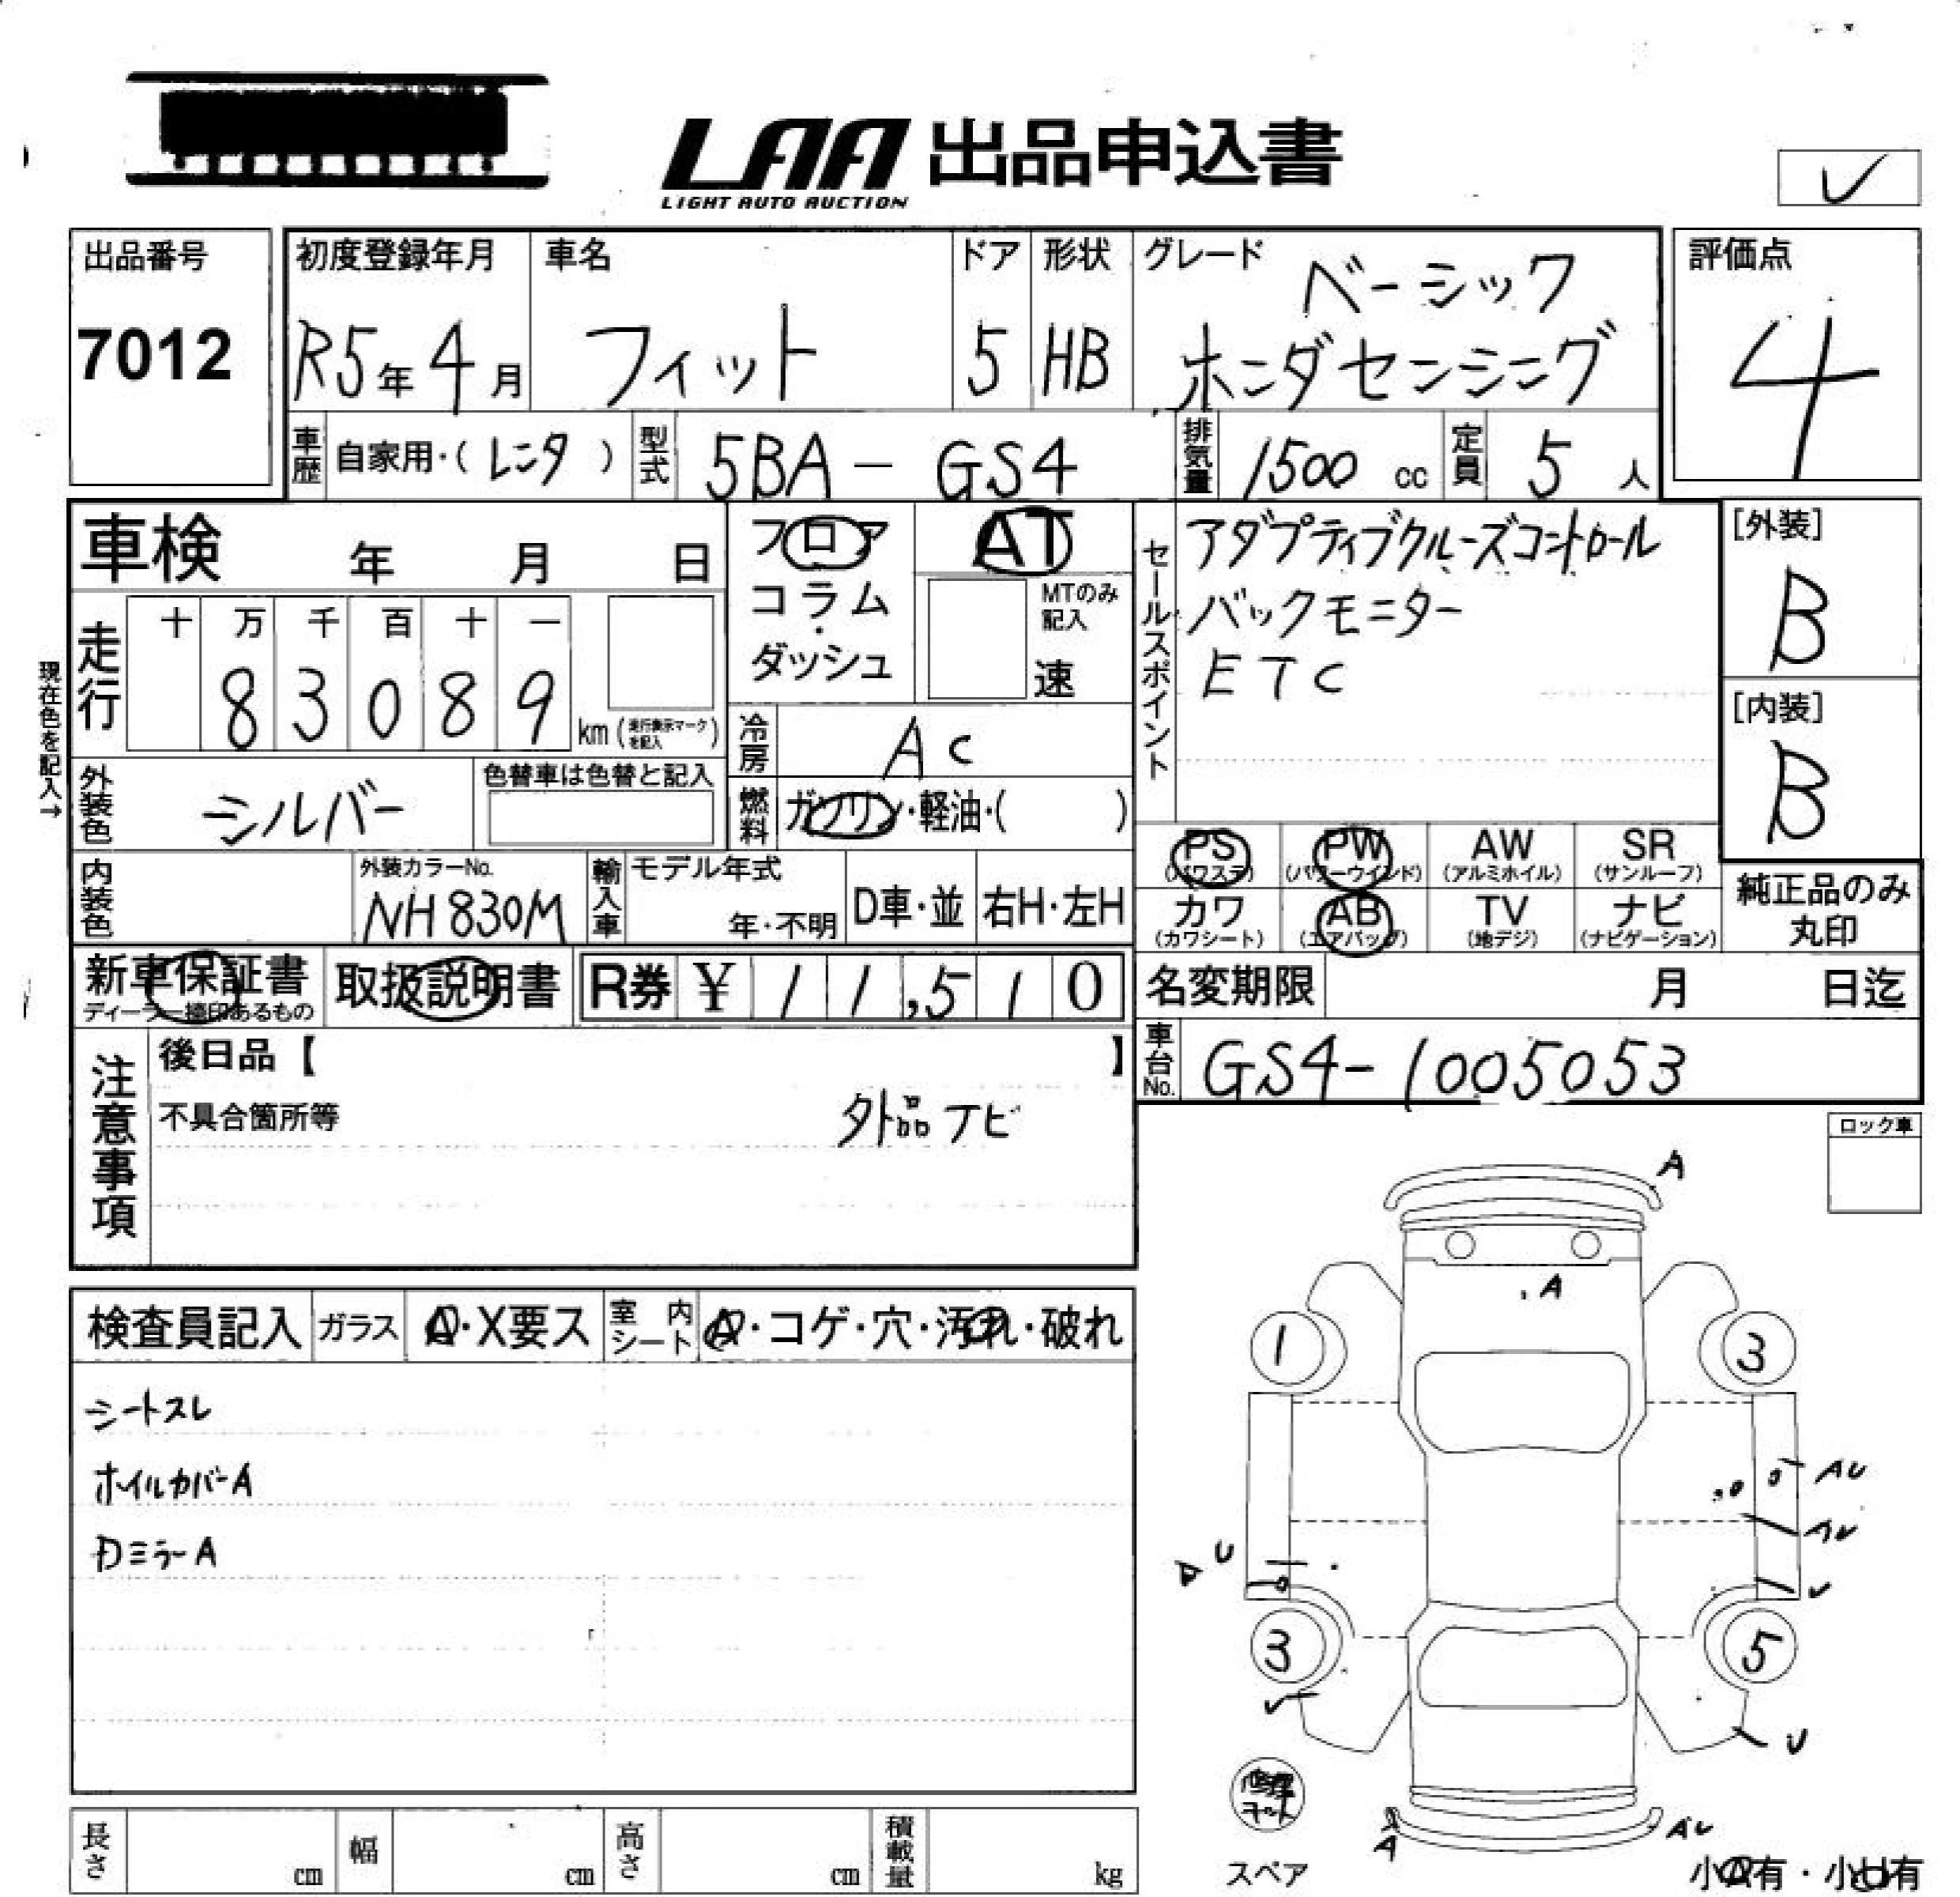 LAA 出品申込書
LIGHT AUTO AUCTION
出品番号
7012
初度登録年月
R5年4月
車名
フィット
ドア
5
形状
HB
グレード
ベーシック
ホンダセンシング
評価点
4
車歴 自家用・(レンタ)
型式 5BA-GS4
排気量 1500 cc
定員 5 人
車検 年 月 日
フロア
コラム
・
ダッシュ
AT
MTのみ
記入
速
セールスポイント
アダプティブクルーズコントロール
バックモニター
ETC
[外装]
B
[内装]
B
現在色を記入→
走行
十 万 千 百 十 一
8 3 0 8 9 km (走行表示マークを記入)
冷房 AC
燃料 ガソリン・軽油・( )
外装色 シルバー
色替車は色替と記入
内装色
外装カラーNo.
NH830M
輸入車
モデル年式
年・不明
D車・並
右H・左H
PS (パワステ)
PW (パワーウインド)
AW (アルミホイル)
SR (サンルーフ)
カワ (カワシート)
AB (エアバッグ)
TV (地デジ)
ナビ (ナビゲーション)
純正品のみ
丸印
新車保証書
ディーラー捺印あるもの
取扱説明書
R券 ¥11,510
名変期限 月 日迄
車台No. GS4-1005053
注意事項
後日品【 】
不具合箇所等
外品ナビ
ロック車
検査員記入
ガラス A・X要ス
室内シート A・コゲ・穴・汚れ・破れ
シートスレ
ホイルカバーA
Dミラー A
A
A
1
3
AU
AU
U
U
3
5
U
A
AU
スペア
小A有・小U有
長さ cm
幅 cm
高さ cm
積載量 kg